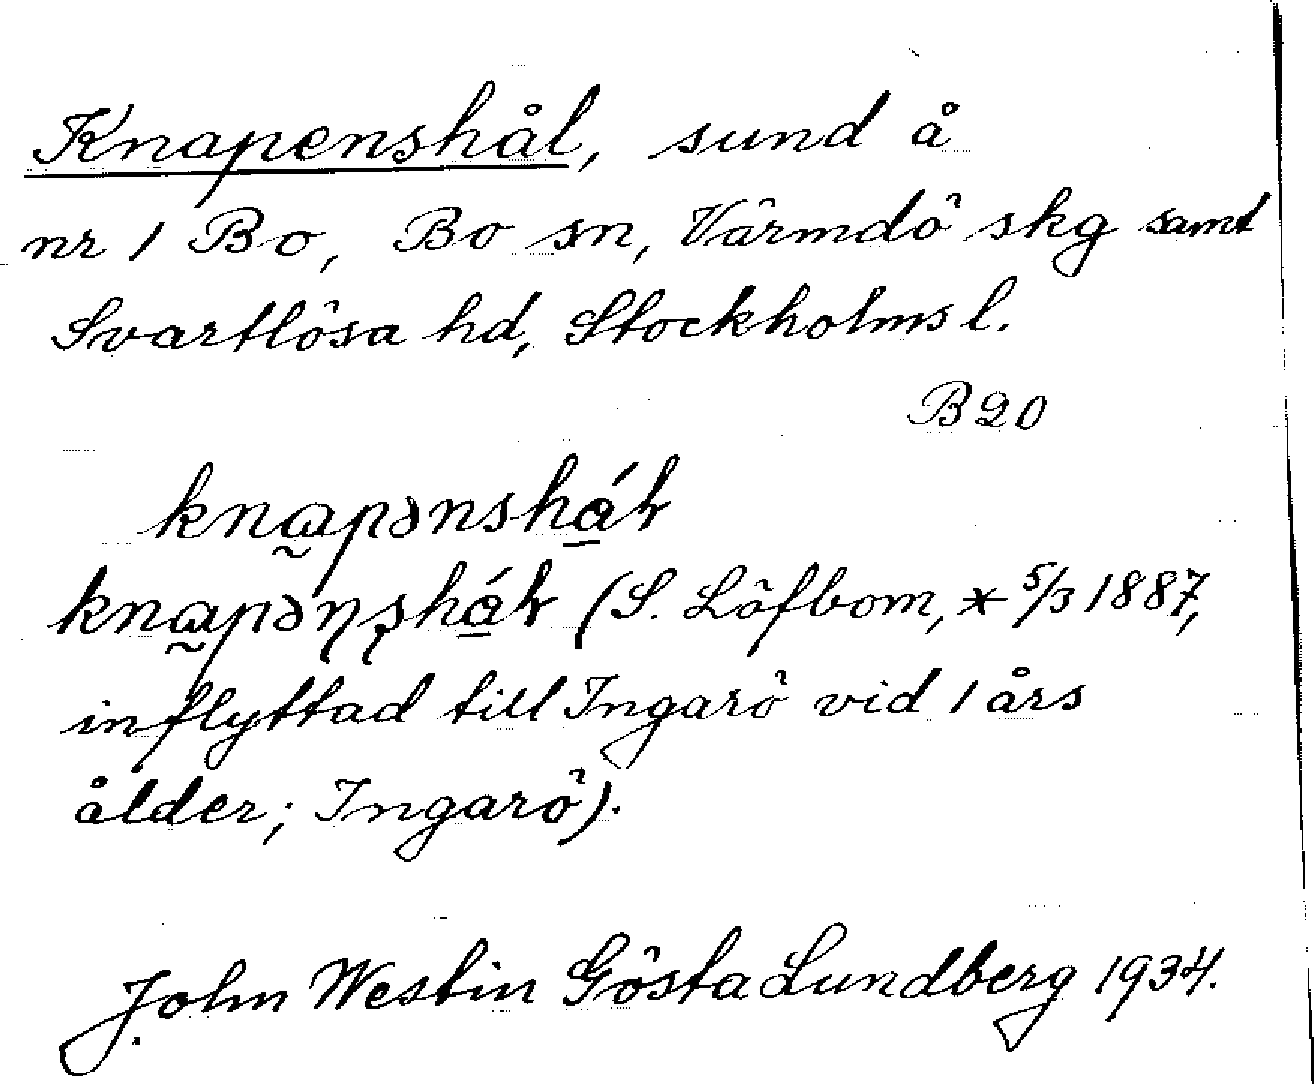 Knapenshål, sund å
nr 1 Bo, Bo sn, Värmdö skg samt
Svartlösa hd, Stockholms l.
B20
knapənshál
knapəṇṣhál (S. Löfbom, * 5/3 1887,
inflyttad till Ingarö vid 1 års
ålder; Ingarö).
John Westin Gösta Lundberg 1934.